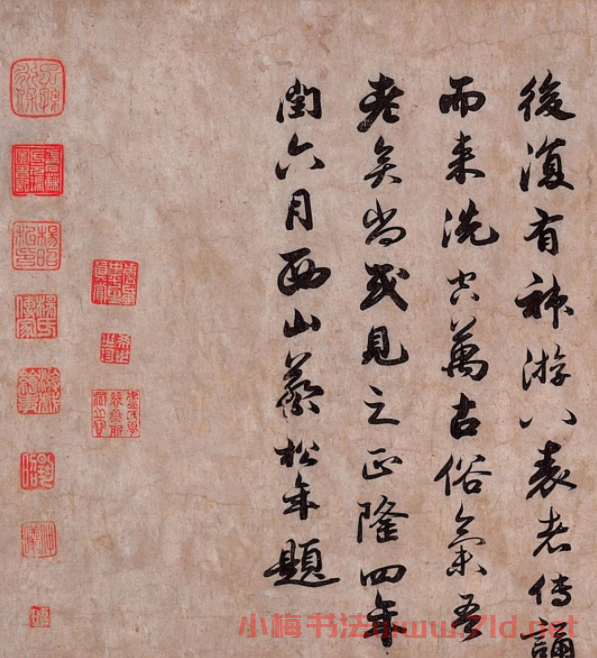 後復有神游八表者傳誦
而来洗空萬古俗氣吾
老矣尚或見之正隆四年
閏六月西山蔡松年題
小梅书法www.7ld.net